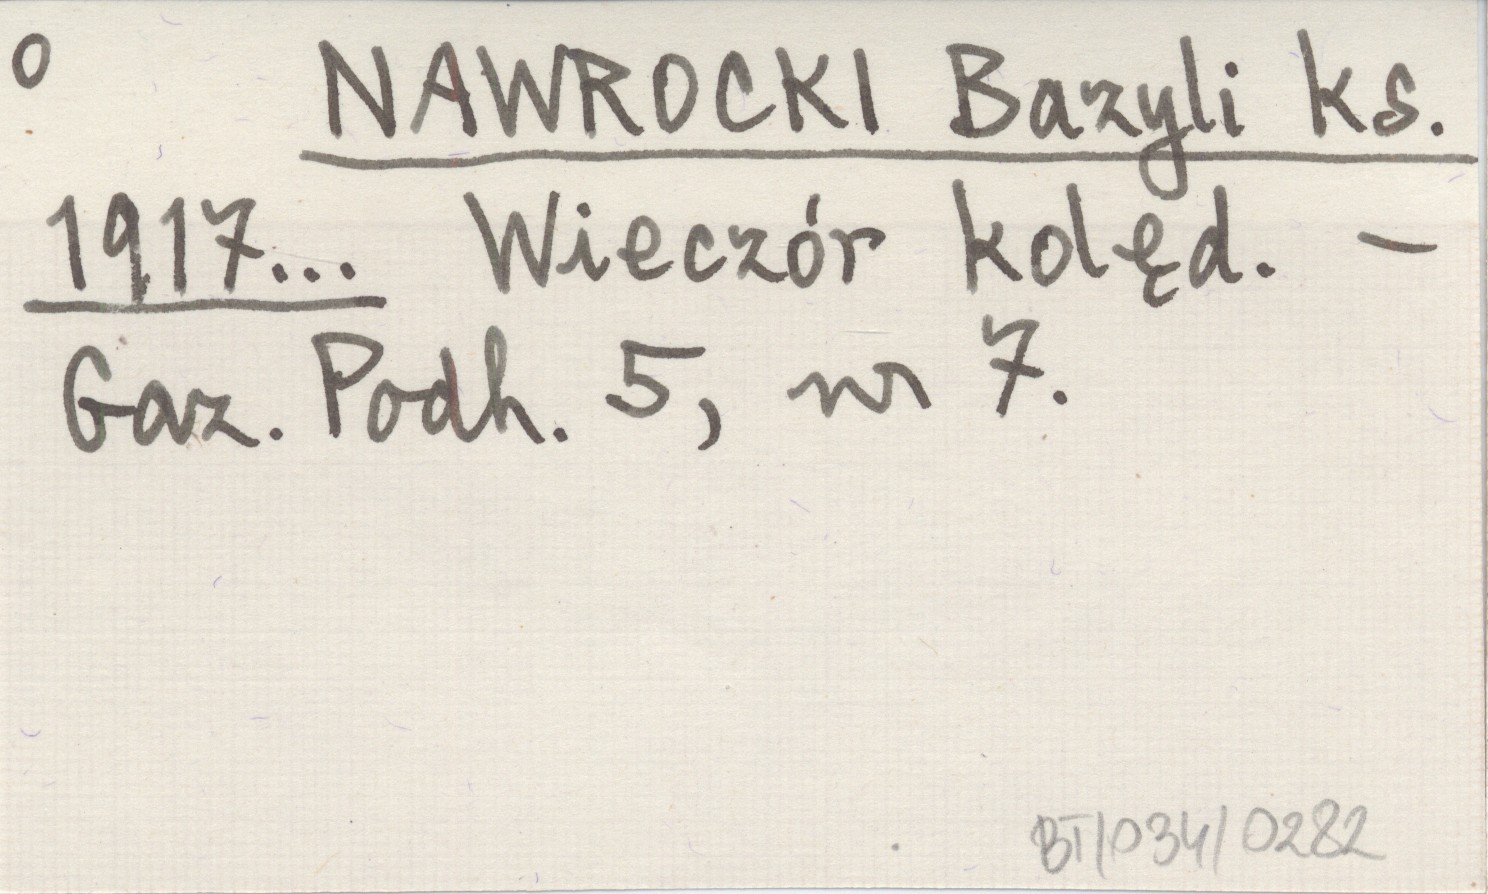 o NAWROCKI Bazyli ks.
1917... Wieczór kolęd. –
Gaz. Podh. 5, nr 7.
BT/034/0282